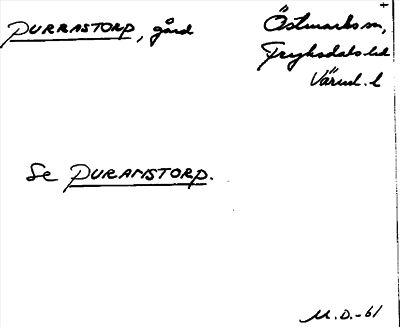 PURRASTORP, gård
Östmarks sn,
Fryksdals hd
Värml. l
Se PURAMSTORP.
M.D.-61